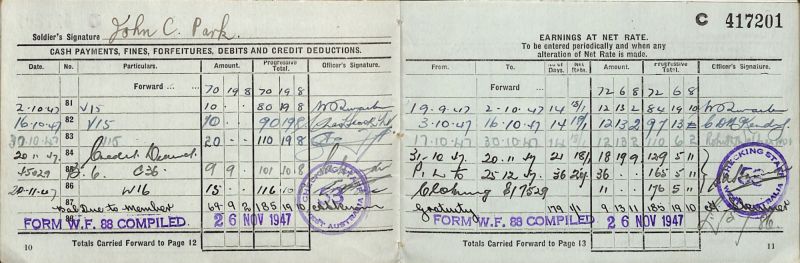 Soldier's Signature John C. Park.
CASH PAYMENTS, FINES, FORFEITURES, DEBITS AND CREDIT DEDUCTIONS.
Date. No. Particulars. Amount. Progressive Total. Officer's Signature.
Forward ... ... 70 19 8 70 19 8
2.10.47 81 V15 10 . - 80 19 8
16.10.47 82 V15 10 . - 90 19 8
30.10.47 83 V15 20 110 19 8
20.11.47 84 Credit
35029 C36 9 9 . 101 10 8
20.11.47 86 W16 15 . 116 10
Bal due to Member 69 9 2 185 19 10
FORM W.F. 88 COMPILED. 26 NOV 1947
10 Totals Carried Forward to Page 12
CHECKING STAFF
WEST AUSTRALIA
C 417201
EARNINGS AT NET RATE.
To be entered periodically and when any
alteration of Net Rate is made.
From. To. No. of Days. Net Rate. Amount. Progressive Total. Officer's Signature.
Forward ... ... 72 6 8 72 6 8
19.9.47 2.10.47 14 18/1 12 13 2 84 19 10
3.10.47 16.10.47 14 18/1 12 13 2 97 13
17.10.47 30.10.47 110 6 2
31.10.47 20.11.47 21 18/1 18 19 9 129 5 11
25.12.47 36 36 . . 165 5 11
Clothing 817529 11 . - 176 5 11
Gratuity 179 1/1 9 13 11 185 19 10
FORM W.F. 88 COMPILED. 26 NOV 1947
Totals Carried Forward to Page 13 11
CHECKING STAFF
WEST AUSTRALIA